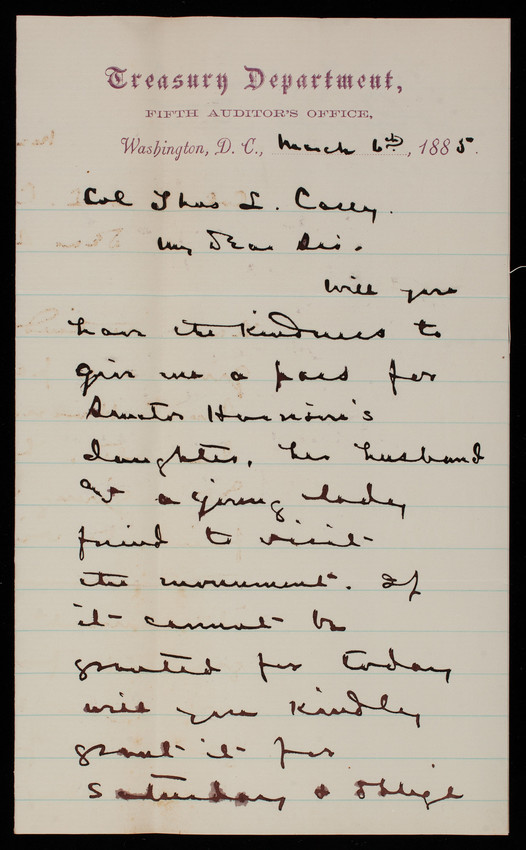 Treasury Department,
FIFTH AUDITOR'S OFFICE,
Washington, D. C., March 6th, 1885.
Col Thos L. Casey.
My Dear Sir.
Will you
have the kindness to
give me a pass for
Senator Harrison's
daughter, her husband
and a young lady
friend to visit
the monument. If
it cannot be
granted for today
will you kindly
grant it for
Saturday & oblige